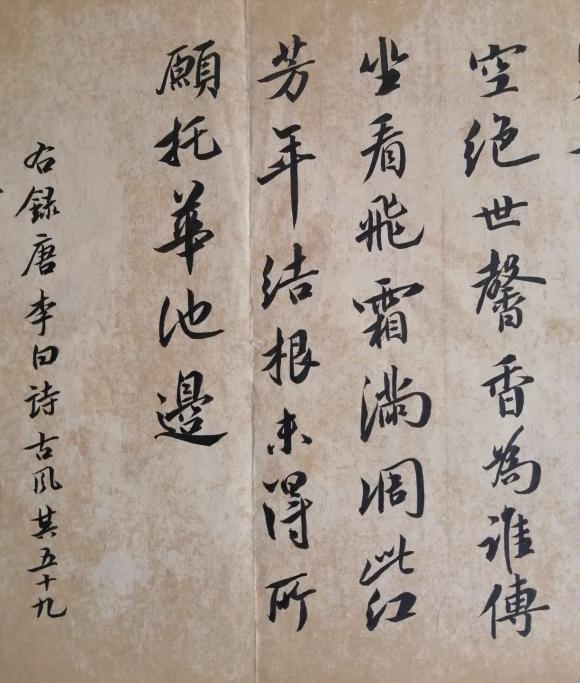 空絕世馨香為誰傳
坐看飛霜滿凋此紅
芳年結根未得所
願托華池邊
右録唐李白詩古風其五十九